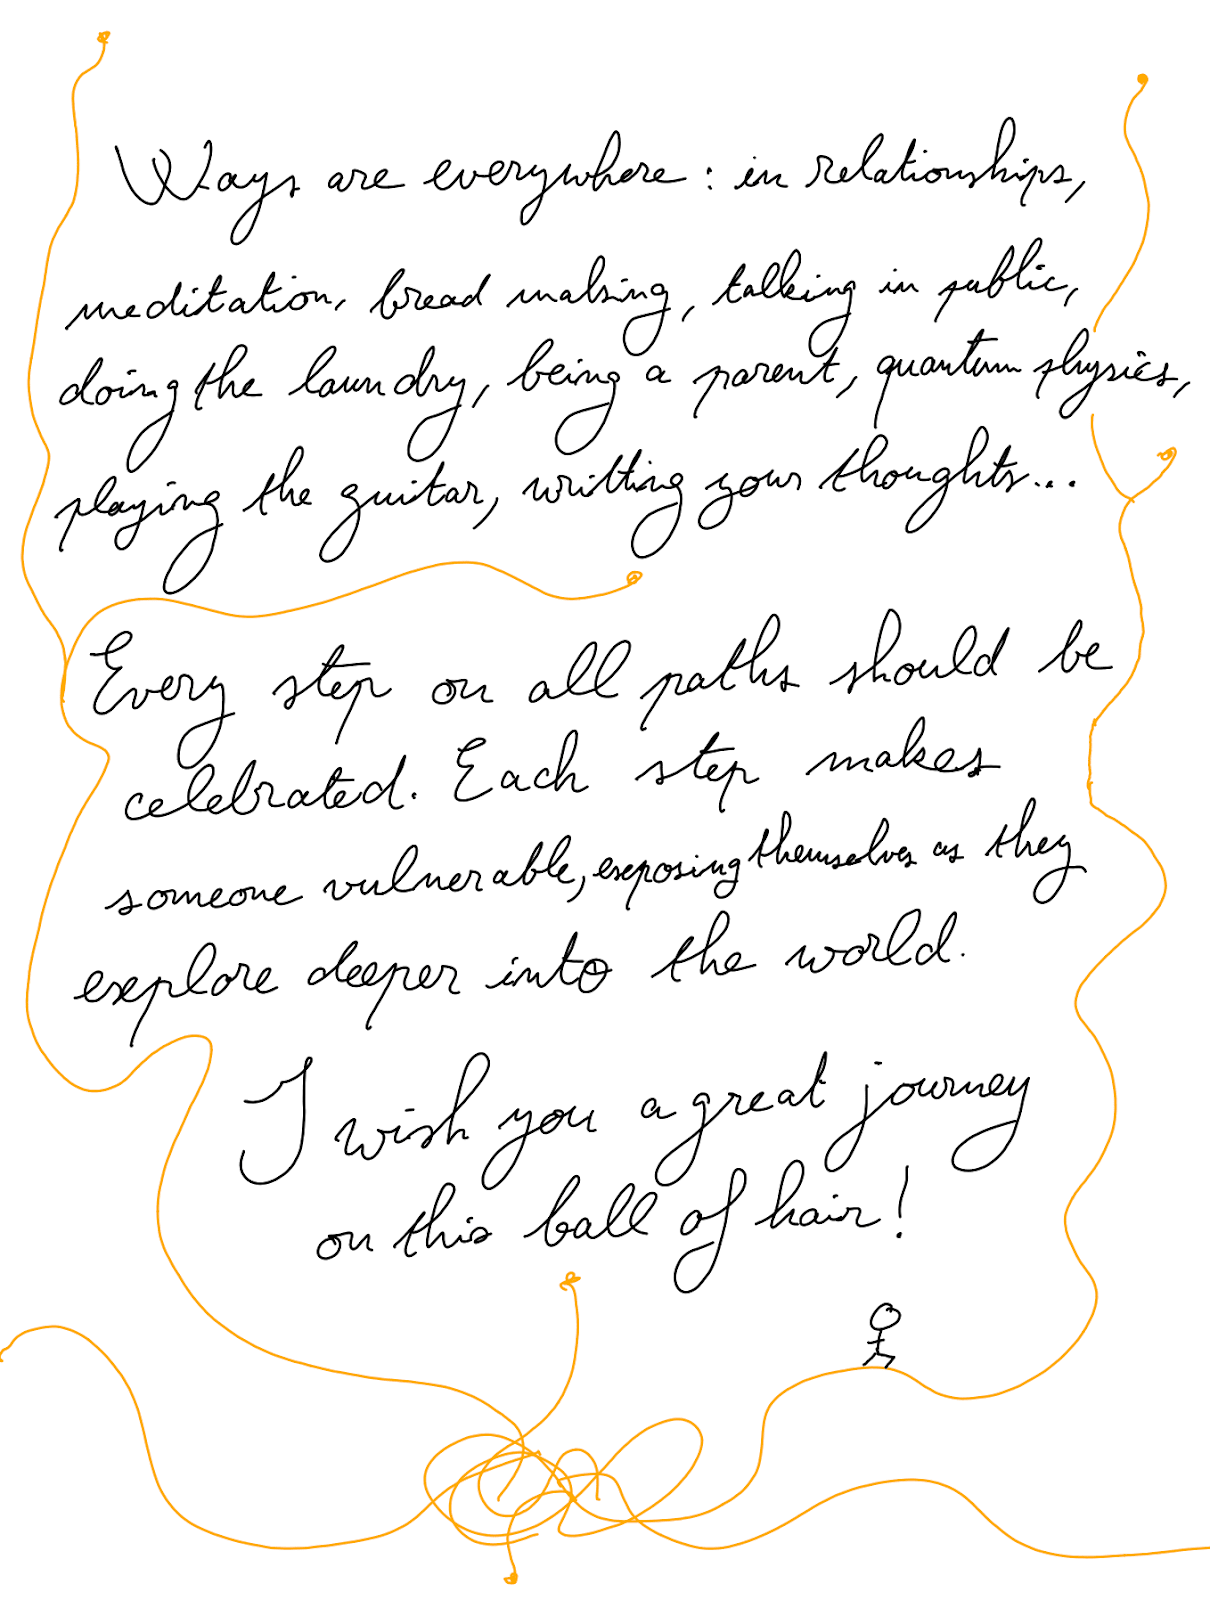 Ways are everywhere : in relationships,
meditation, bread making, talking in public,
doing the laundry, being a parent, quantum physics,
playing the guitar, writting your thoughts...
Every step on all paths should be
celebrated. Each step makes
someone vulnerable, exposing themselves as they
explore deeper into the world.
I wish you a great journey
on this ball of hair!